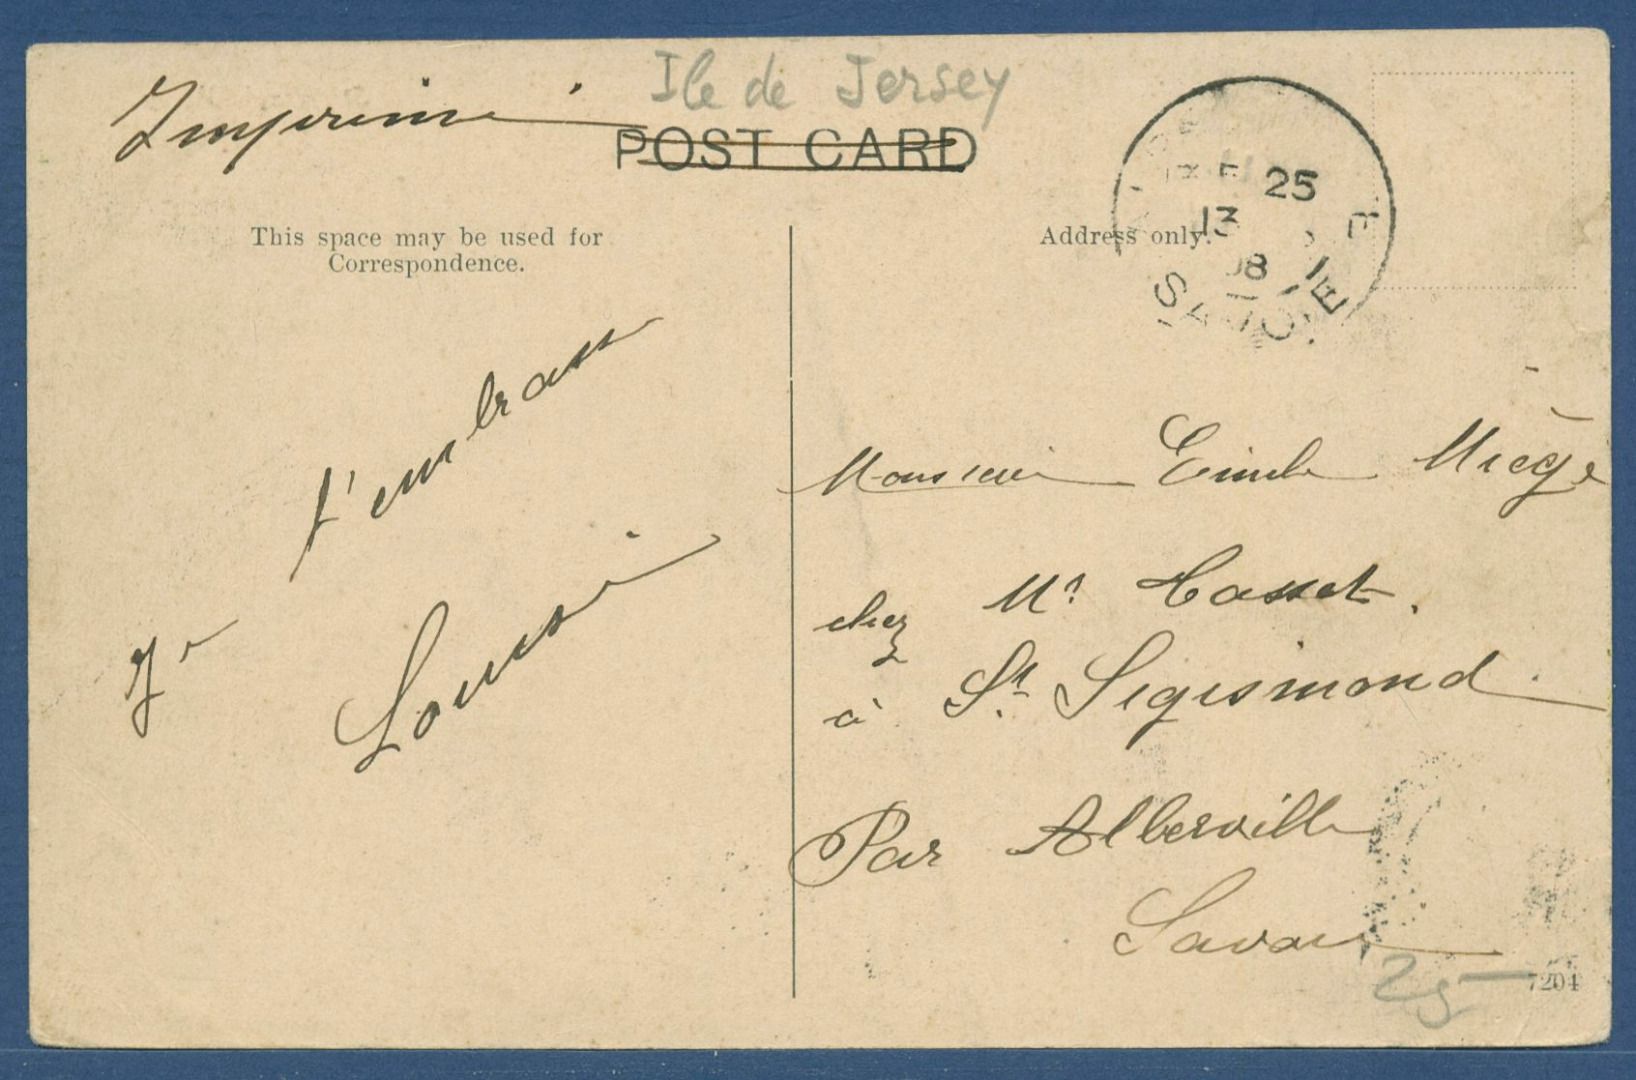 Ile de Jersey
Imprimé
POST CARD
This space may be used for
Correspondence.
Address only.
25
13
08
SAVOIE
Je t'embrasse
Monsieur Emile Miège
chez Mr
à St. Sigismond
Par Alberville
Savoie
25 -
7204